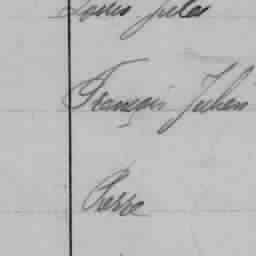 Louis Jules
François Julien
Pierre